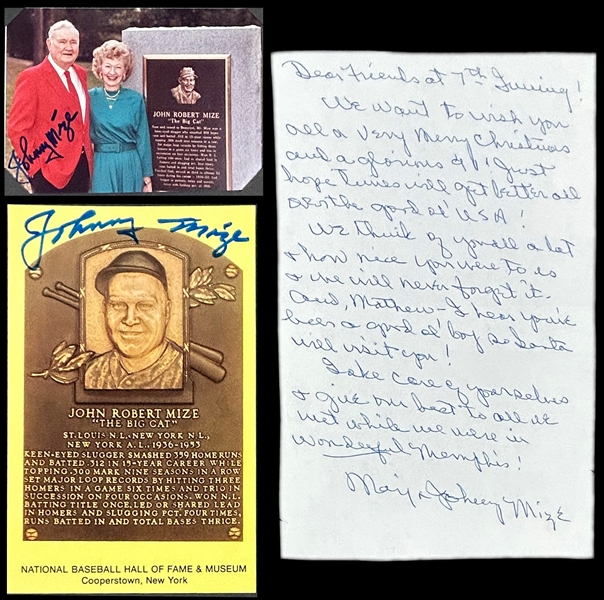 Johnny Mize
JOHN ROBERT MIZE
"The Big Cat"
Johnny Mize
JOHN ROBERT MIZE
"THE BIG CAT"
ST. LOUIS N.L., NEW YORK N.L.,
NEW YORK A.L., 1936-1953
KEEN-EYED SLUGGER SMASHED 359 HOME RUNS
AND BATTED .312 IN 15-YEAR CAREER WHILE
TOPPING .300 MARK NINE SEASONS IN A ROW.
SET MAJOR LOOP RECORDS BY HITTING THREE
HOMERS IN A GAME SIX TIMES AND TRIO IN
SUCCESSION ON FOUR OCCASIONS. WON N.L.
BATTING TITLE ONCE, LED OR SHARED LEAD
IN HOMERS AND SLUGGING PCT. FOUR TIMES,
RUNS BATTED IN AND TOTAL BASES THRICE.
NATIONAL BASEBALL HALL OF FAME & MUSEUM
Cooperstown, New York
Dear Friends at 7th Inning!
We want to wish you
all a Very Merry Christmas
and a glorious & I Just
hope times will get better all
over the good ol' USA!
We think of you all a lot
& how nice you were to us
& we will never forget it.
And, Mathew - I hear you've
been a good ol' boy so Santa
will visit you!
Take care of yourselves
& give our best to all we
met while we were in
Wonderful Memphis!
Marj & Johnny Mize